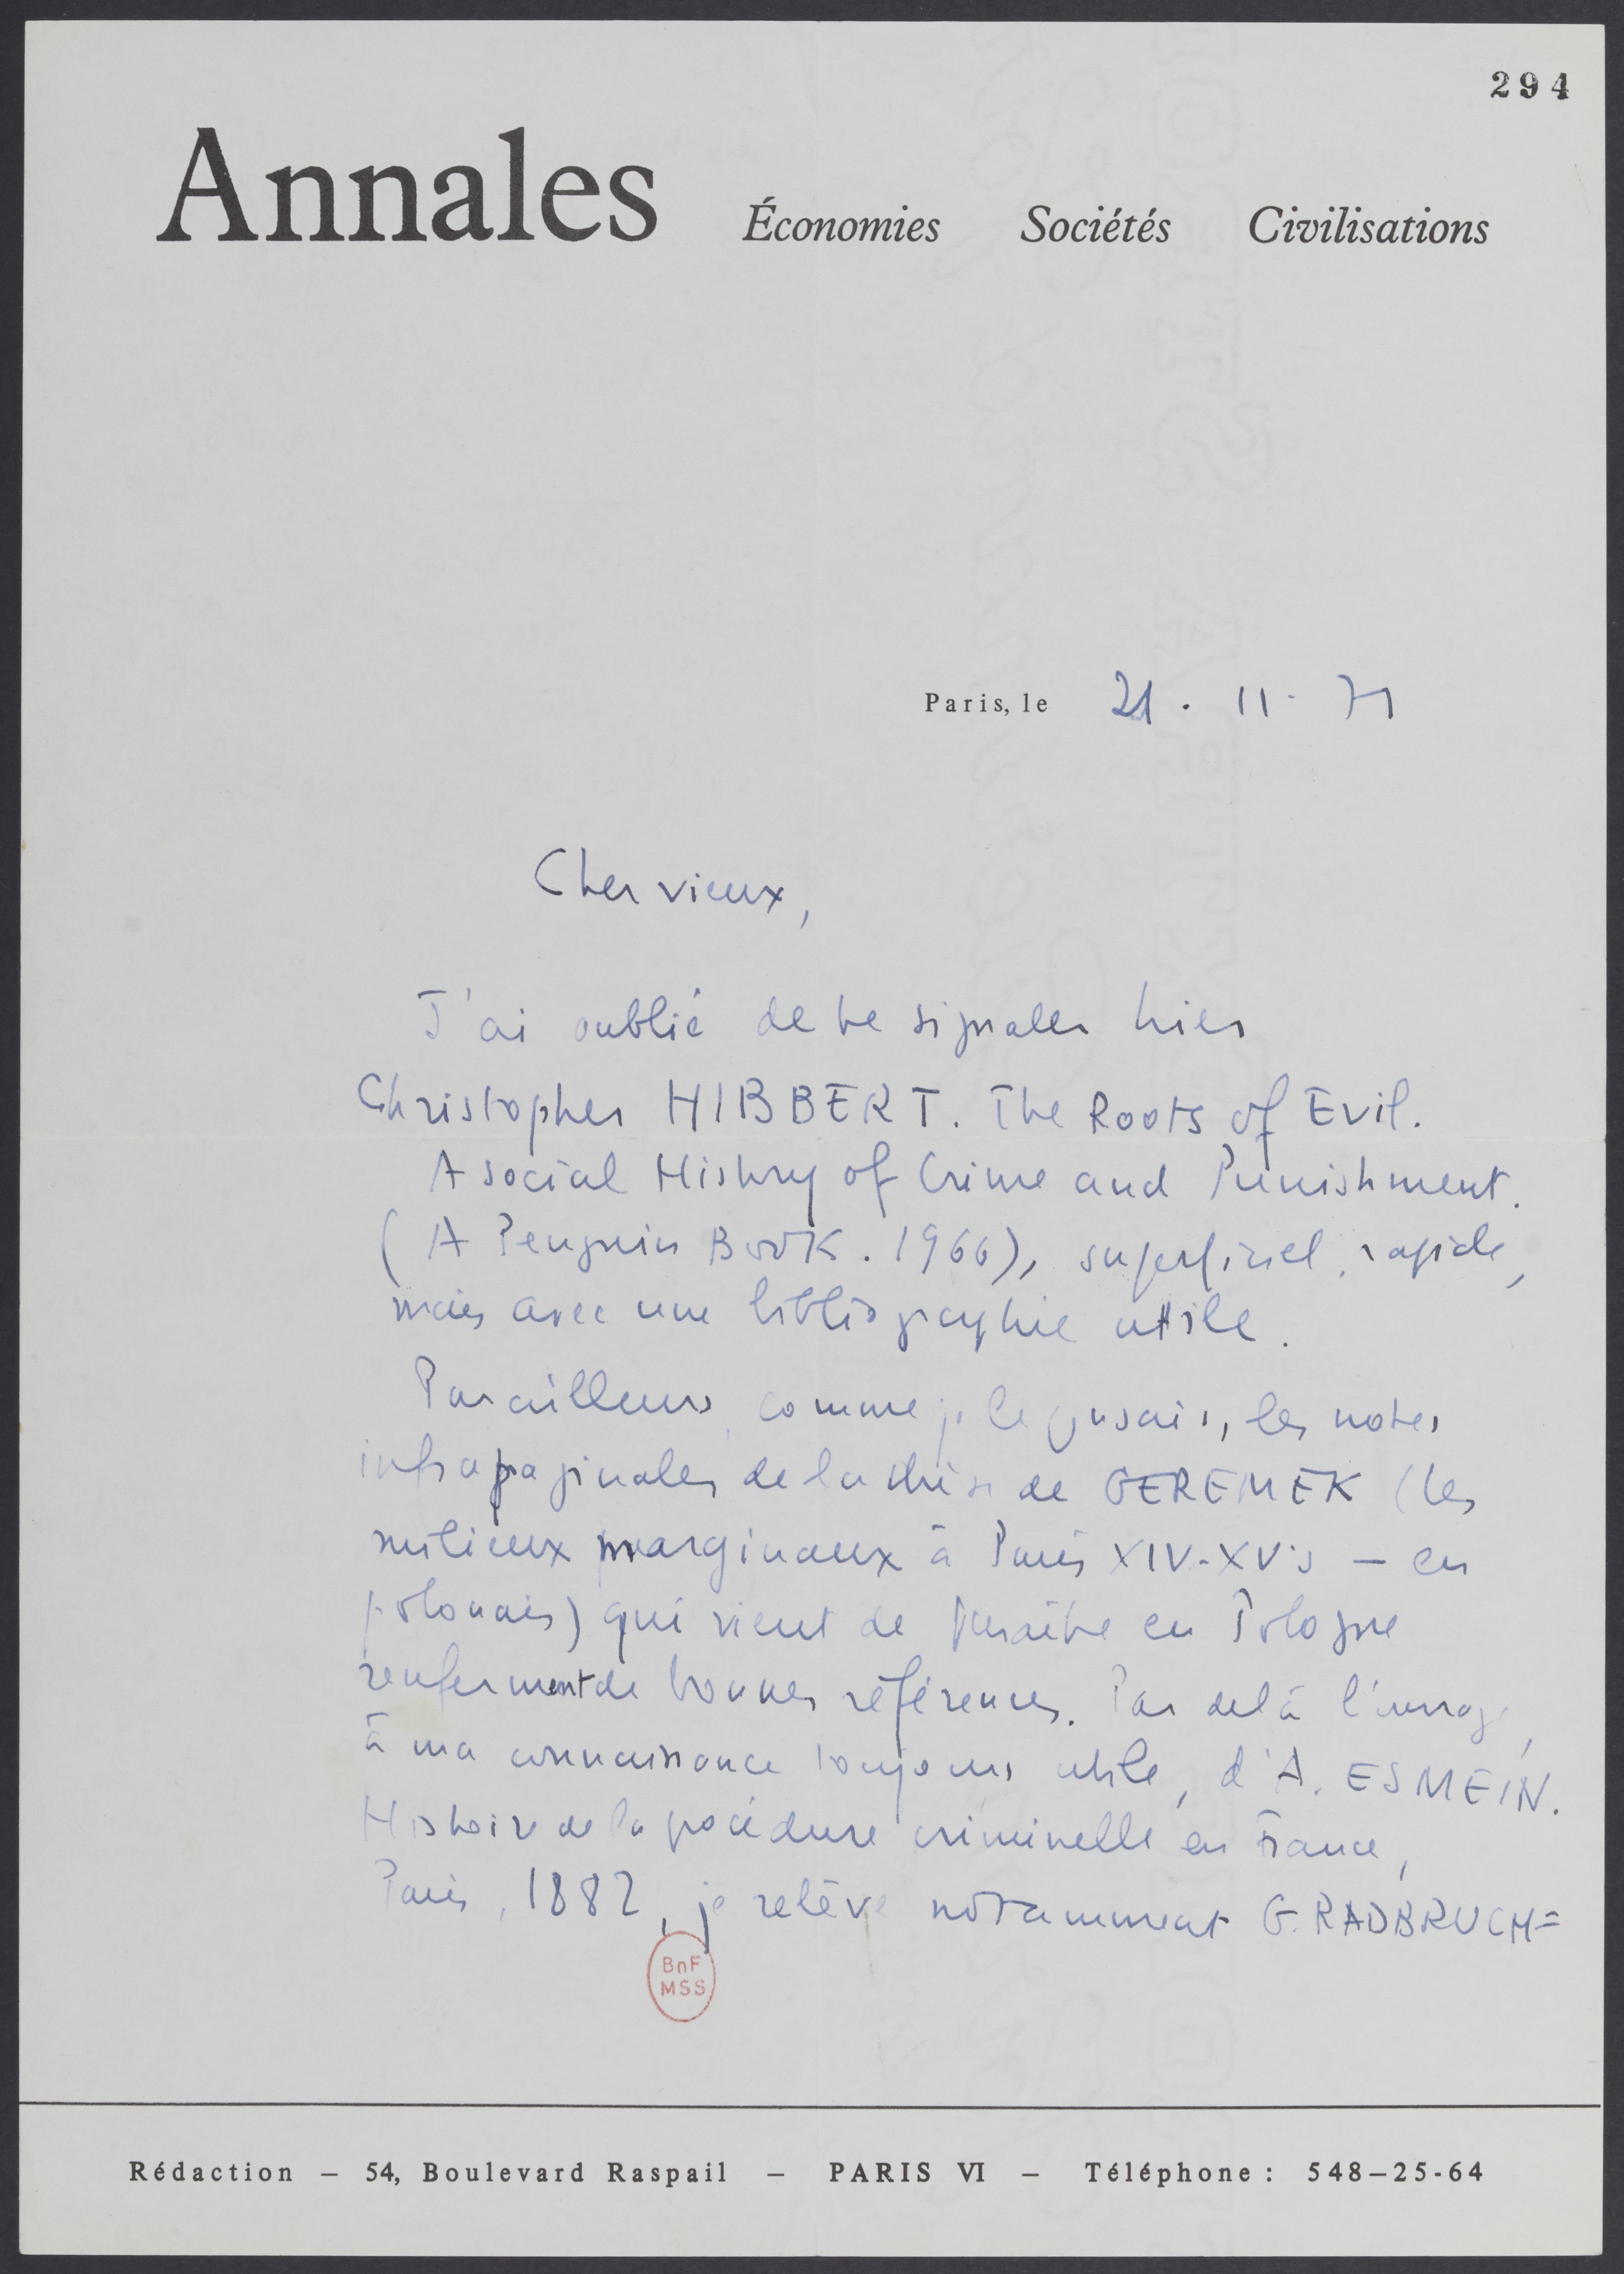 294
Annales Économies Sociétés Civilisations
Paris, le 21. 11. 71
Cher vieux,
J'ai oublié de te signaler hier
Christopher HIBBERT. The Roots of Evil.
A social History of Crime and Punishment.
(A Penguin Book. 1966), superficiel, rapide,
mais avec une bibliographie utile.
Par ailleurs, comme je le pensais, les notes
infrapaginales de la thèse de GEREMEK (les
milieux marginaux à Paris XIV-XVs — en
polonais) qui vient de paraître en Pologne
renferment de bonnes références. Par delà l'ouvrage,
à ma connaissance toujours utile, d'A. ESMEIN.
Histoire de la procédure criminelle en France,
Paris, 1882, je relève notamment G. RADBRUCH=
BnF
MSS
Rédaction – 54, Boulevard Raspail – PARIS VI – Téléphone : 548–25-64